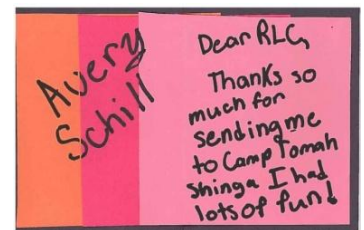 Avery
Schill
Dear RLC,
Thanks so
much for
sending me
to Camp Tomah
Shinga I had
lots of fun!